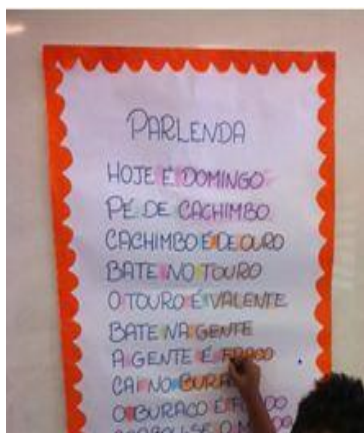 PARLENDA
HOJE É DOMINGO
PÉ DE CACHIMBO
CACHIMBO É DE OURO
BATE NO TOURO
O TOURO É VALENTE
BATE NA GENTE
A GENTE É FRACO
CAI NO
O BURACO É